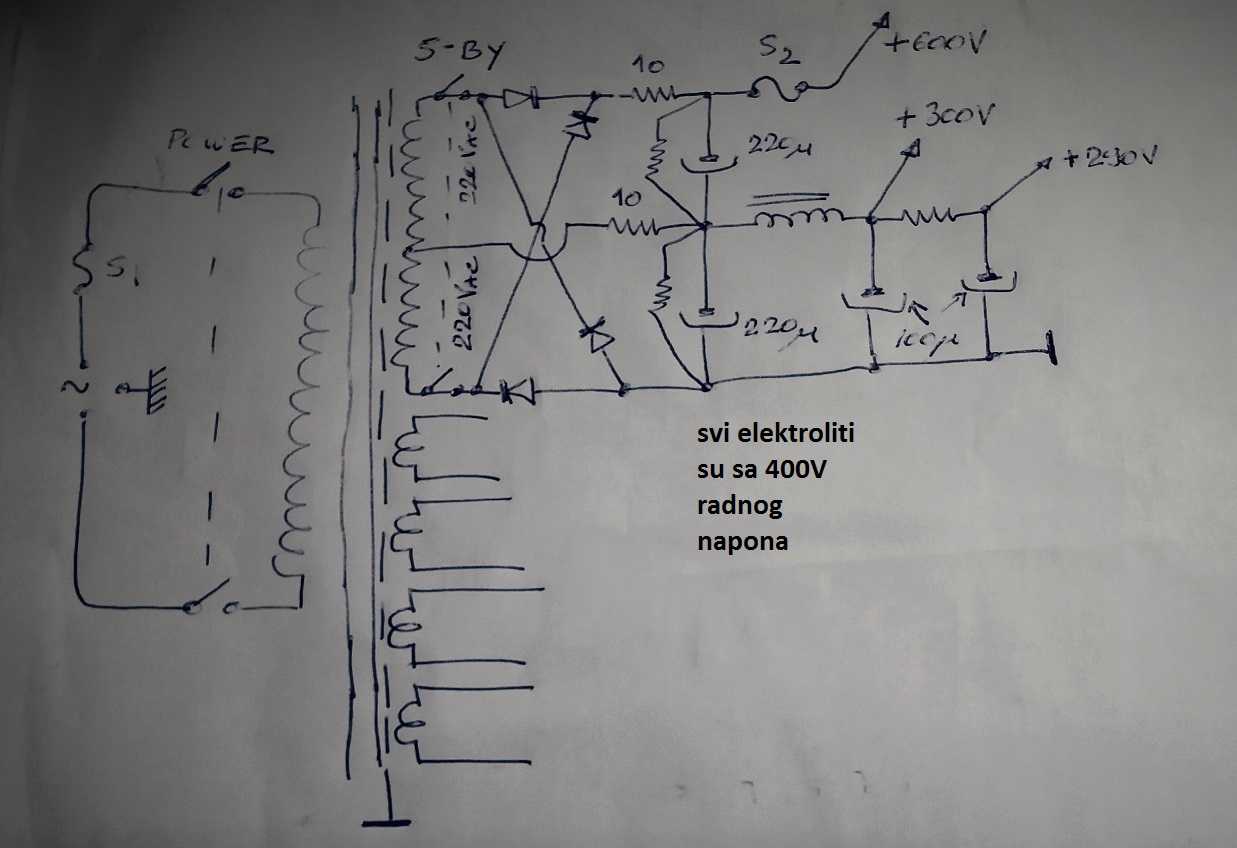 S-BY
10
S2
+600V
POWER
220VAC
220µ
+300V
+290V
10
S1
220VAC
220µ
100µ
~
svi elektroliti
su sa 400V
radnog
napona